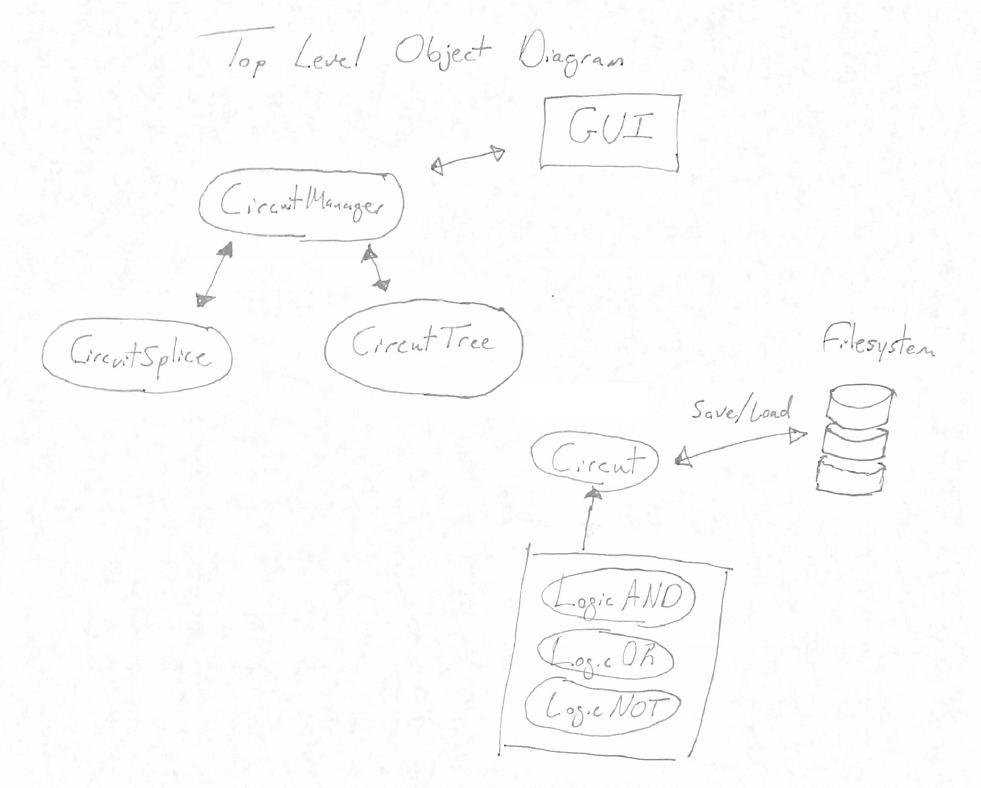 Top Level Object Diagram
GUI
CircuitManager
CircuitSplice
CircutTree
Filesystem
Save/Load
Circut
Logic AND
Logic OR
Logic NOT